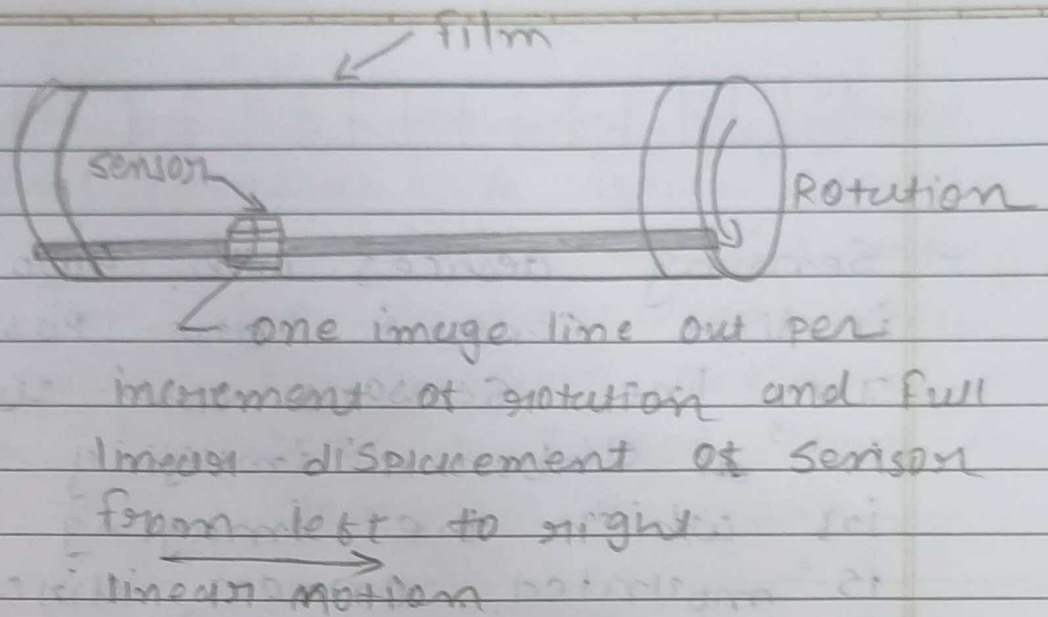 film
sensor
Rotation
one image line out per
increment of rotation and full
linear displacement of sensor
from left to right
linear motion